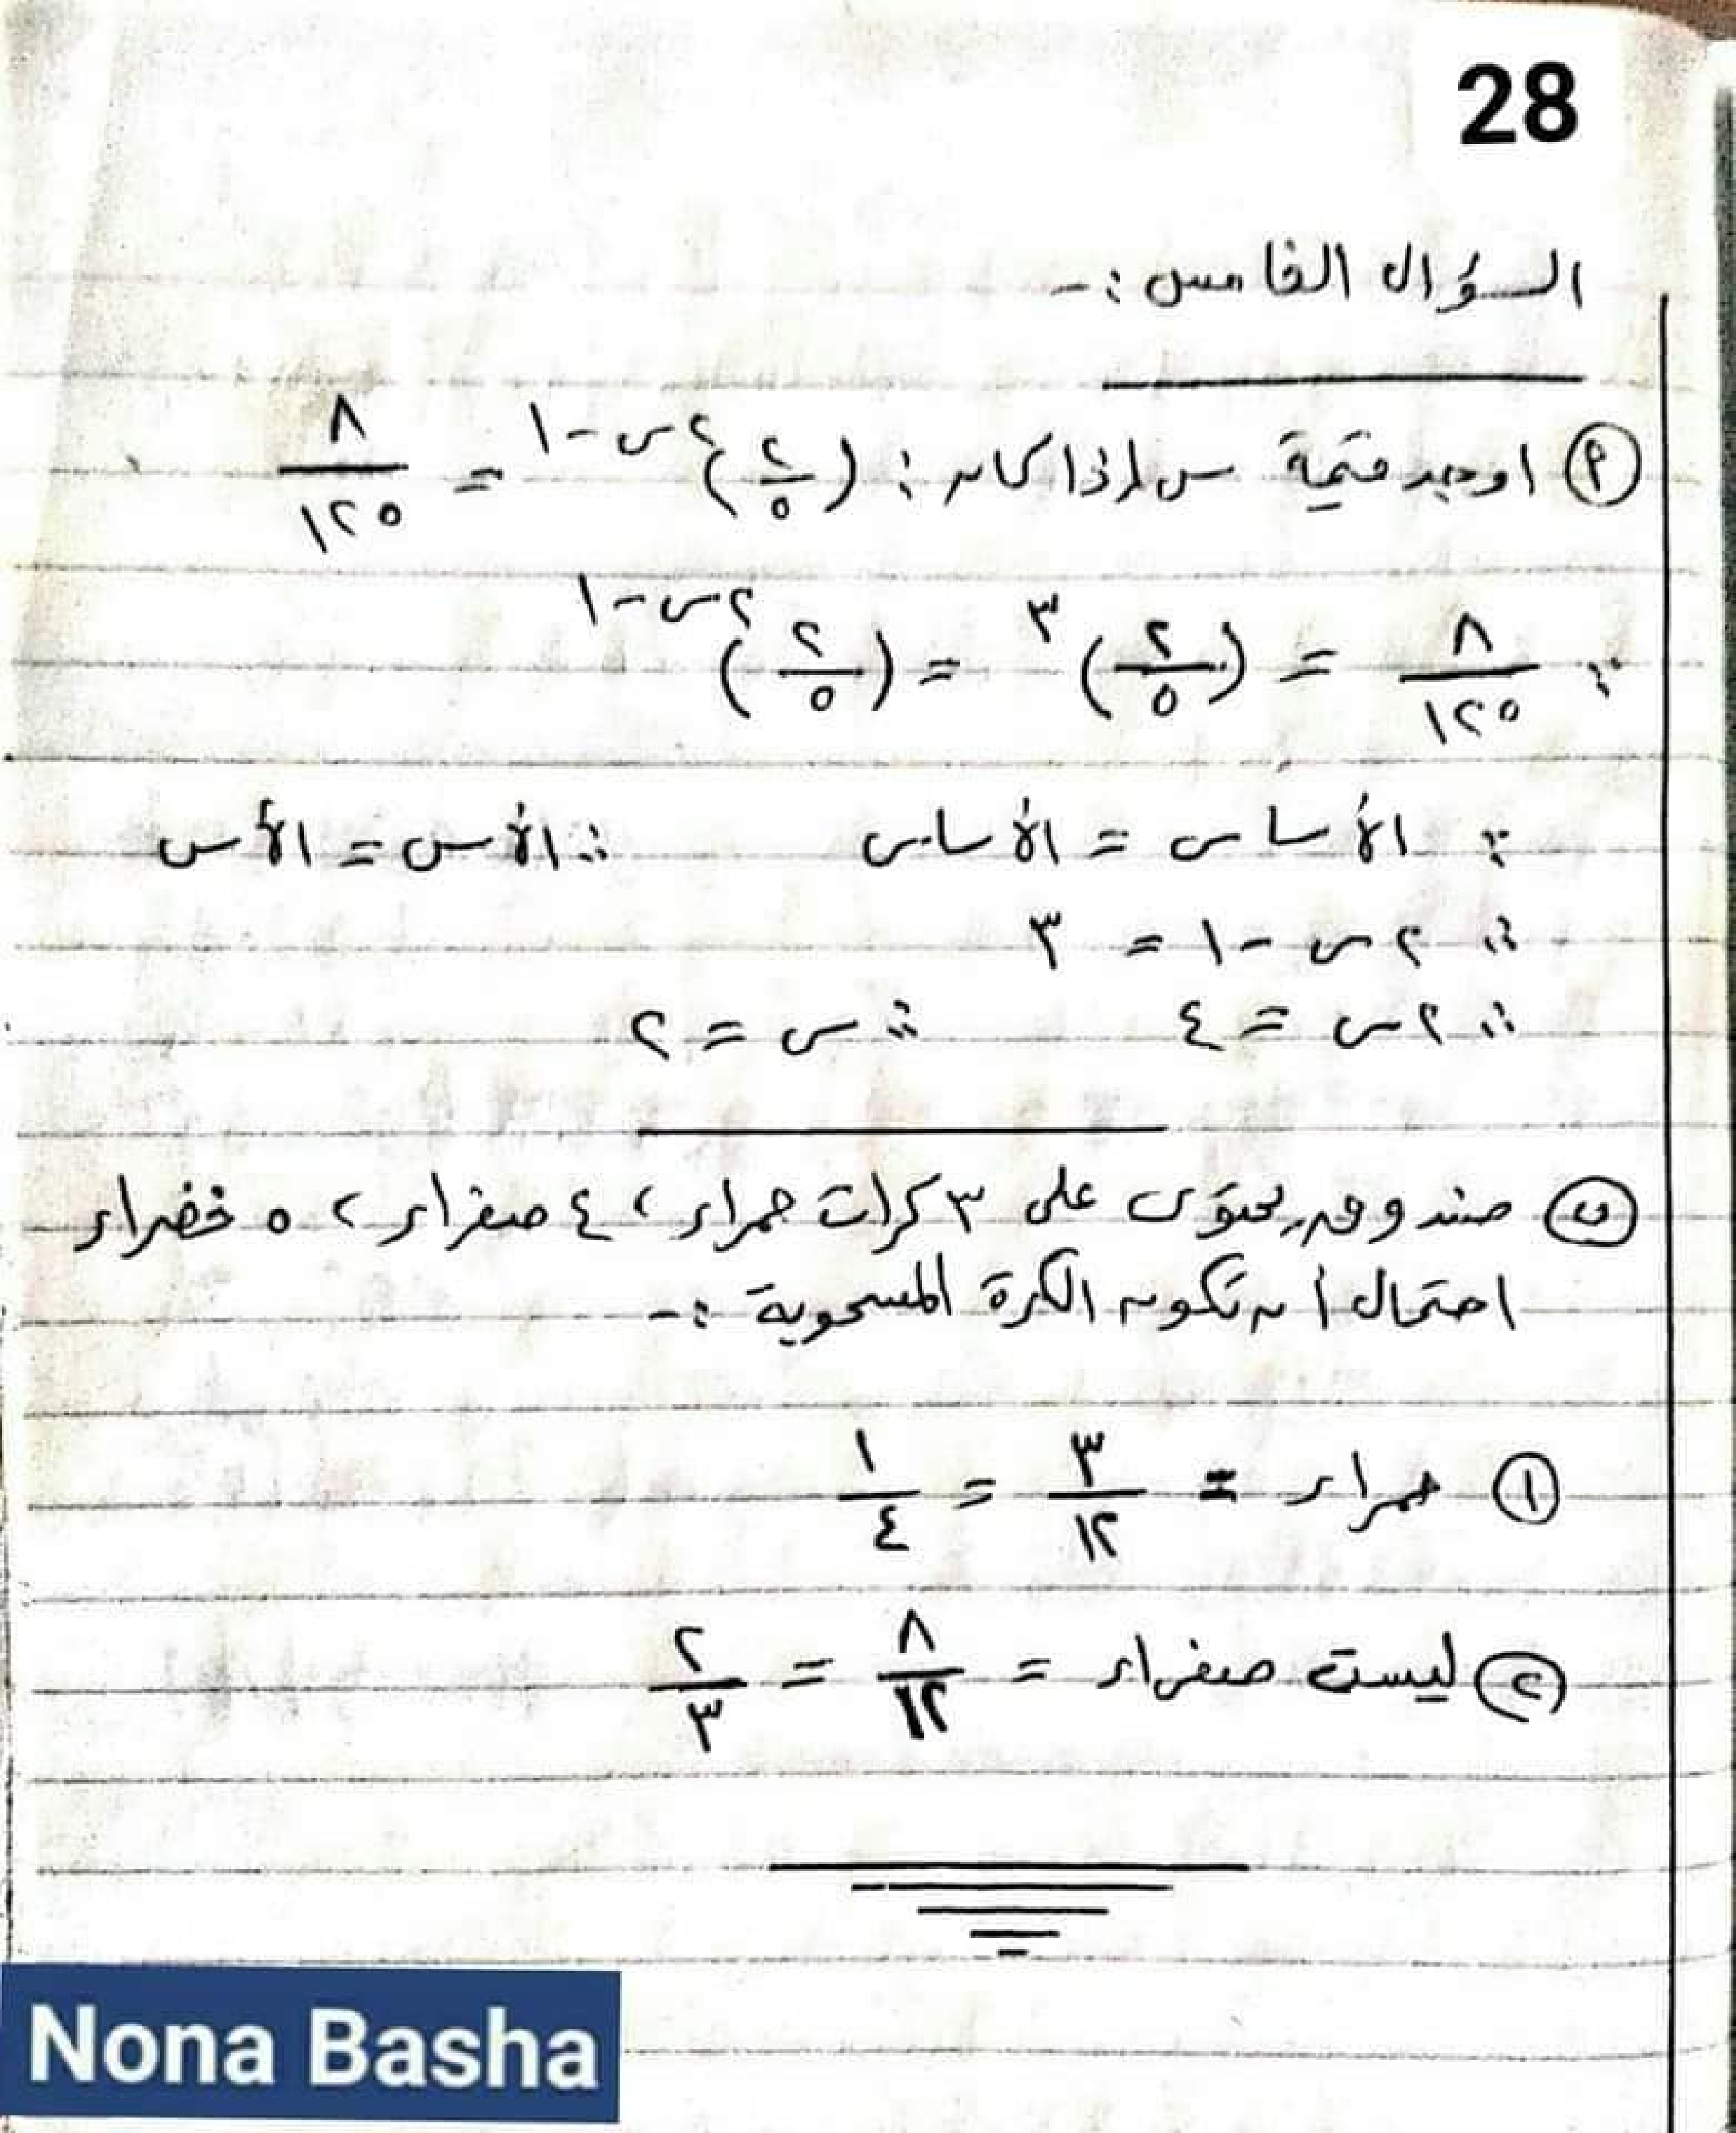 28
السؤال الخامس :-
(أ) اوجد قيمة س إذا كان : (٢/٥)^(٢س-١) = ٨/١٢٥
∵ ٨/١٢٥ = (٢/٥)^٣ = (٢/٥)^(٢س-١)
∵ الأساس = الأساس ∴ الأس = الأس
∴ ٢س - ١ = ٣
∴ ٢س = ٤ ∴ س = ٢
(ب) صندوق يحتوى على ٣ كرات حمراء ، ٤ صفراء ، ٥ خضراء
احتمال أن تكون الكرة المسحوبة :-
(١) حمراء = ٣/١٢ = ١/٤
(٢) ليست صفراء = ٨/١٢ = ٢/٣
Nona Basha